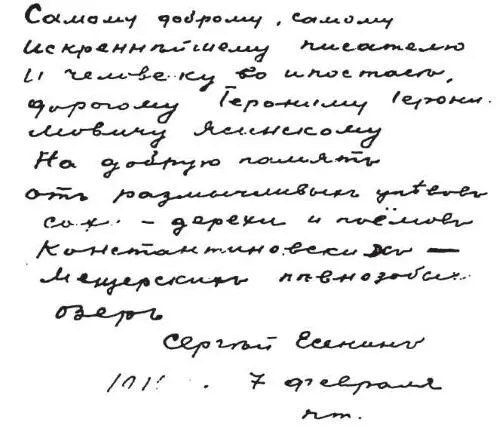 Самому доброму, самому
Искреннѣйшему писателю
И человеку во ипостась,
дорогому Іерониму Іерони-
мовичу Ясинскому
На добрую память
отъ размычливыхъ упѣвовъ
сохи – дерехи и поёмовъ
Константиновскихъ –
Мещерскихъ пѣвнозобых
озеръ
Сергѣй Есенинъ
7 февраля
пт.